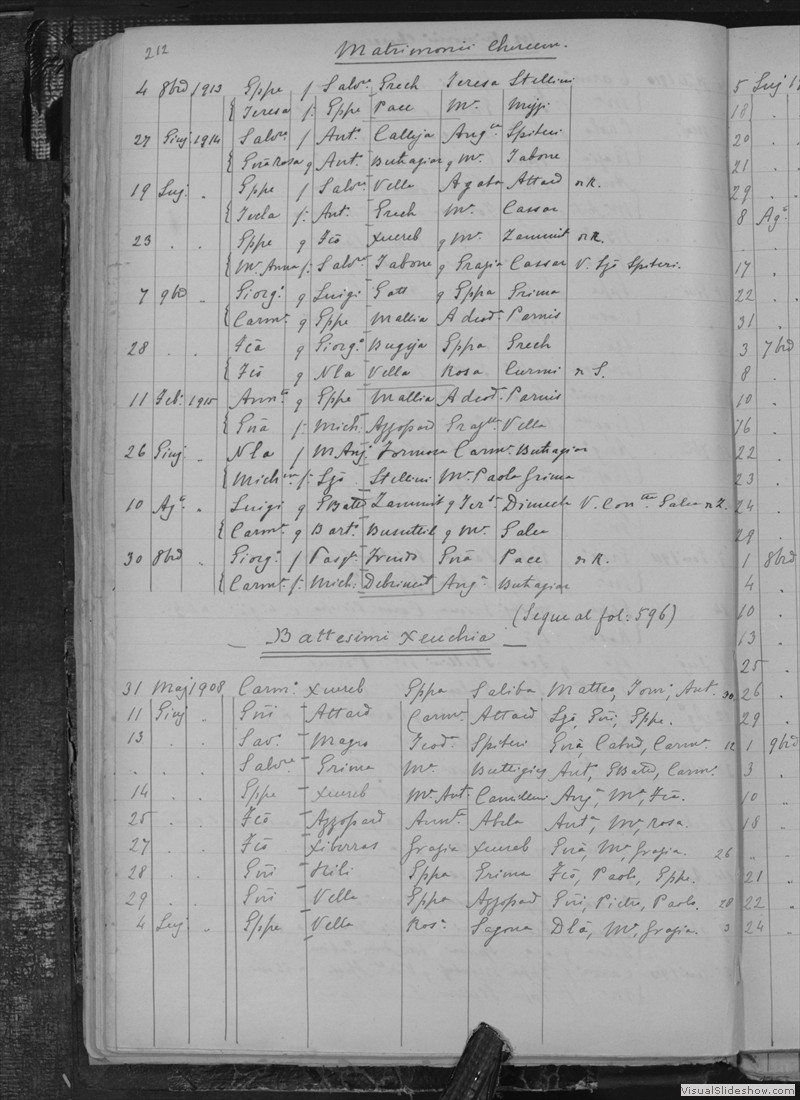 212
Matrimonii Chercem.
4 8bre 1913 Gppe f Salvre Grech Teresa Stellini
{ Teresa f: Gppe Pace Ma
27 Giug 1914 Salvre f Anto Calleja Anga Spiteri
{ Gna Rosa q Anto Buttagiar q Ma Tabone
19 Lug. " Gppe f Salvre Vella Agata Attard nR.
{ Tecla f: Anto Grech Ma Cassar
23 . . Gppe q Fco Xuereb q Ma Zammit nR.
{ Ma Anna f: Salvre Tabone q Grazia Cassar V. Lgo Spiteri.
7 9bre " Giorgo q Luigi Gatt q Gppa Grima
{ Carma q Gppe Mallia Adeoda Parnis
28 . . Fca q Giorgo Bugeja Gppa Grech
{ Fco q Nla Vella Rosa Curmi n S.
11 Feb. 1915 q Gppe Mallia Adeoda Parnis
{ Gna f: Mich. Azzopard Grazla Vella
26 Giug " Nla f M Ang Formosa Carma Buttagiar
{ f: Lgo Stellini Ma Paola Grima
10 Ago " Luigi q GBatta Zammit q Tera Dimech V. Salea n Z.
{ Carma q Barto Busuttil q Ma Salea
30 8bre " Giorgo f Pasqe Trevisi Gna Pace nR.
{ Carma f: Mich. Debrincat Anga Buttagiar
(Segue al fol. 596)
Battesimi Xeuchia
31 Mag 1908 Carmo Xuereb Gppa Saliba Matteo, Tom, Ant. 30
11 Giug " Gni Attard Carma Attard Lgo, Gni, Gppe.
13 . . Sav. Magro Teoda Spiteri Gna, Catna, Carma 12
. . . Salvre Grima Ma Buttigieg Ant, GBatta, Carmo
14 . . Gppe Xuereb Ma Ant. Camilleri Anga, Ma, Fca.
25 . . Fco Azzopard Annta Abela Anta, Ma, Rosa.
27 . . Fco Xiberras Grazia Xuereb Gna, Ma, Grazia. 26
28 . . Gni Hili Gppa Grima Fco, Paolo, Gppe.
29 . . Gni Vella Gppa Azzopard Gni, Pietro, Paolo. 28
4 Lug " Gppe Vella Rosa Sagona Dla, Ma, Grazia. 3
5 Lug
18 .
20 .
21 .
29 .
8 Ago
. .
17 .
22 .
31 .
3 7bre
8 .
10 .
16 .
22 .
23 .
24 .
29 .
1 8bre
4 .
10 .
13 .
25 .
26 .
29 .
1 9bre
3 .
10 .
18 .
. .
21 .
22 .
24 .
VisualSlideshow.com